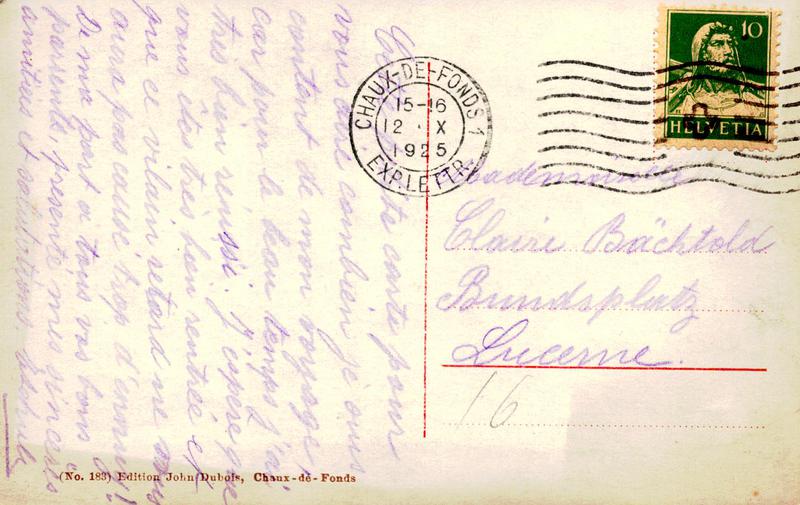 Cette carte pour
vous dire combien je suis
content de mon voyage,
car pour le beau temps j'ai
très bien réussi. J'espère que
vous êtes très bien rentrée et
que ce vilain retard ne vous
aura pas causé trop d'ennuis!
De ma part à tous vos bons
parents, présente mes sincères
amitiés et salutations.
CHAUX-DE-FONDS 1
15-16
12 · X
1925
EXP. LETTR.
10
HELVETIA
Mademoiselle
Claire Bächtold
Bundsplatz
Lucerne.
16
(No. 183) Edition John Dubois, Chaux-de-Fonds